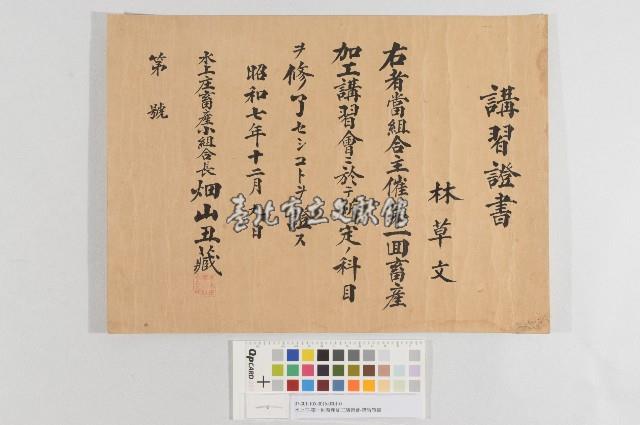 講習證書
林草文
右者當組合主催第一回畜産
加工講習會ニ於テ所定ノ科目
ヲ修了セシコトヲ證ス
昭和七年十二月 日
水上庄畜産小組合長 畑山丑藏
第 號
臺北市立文獻館
QPCARD